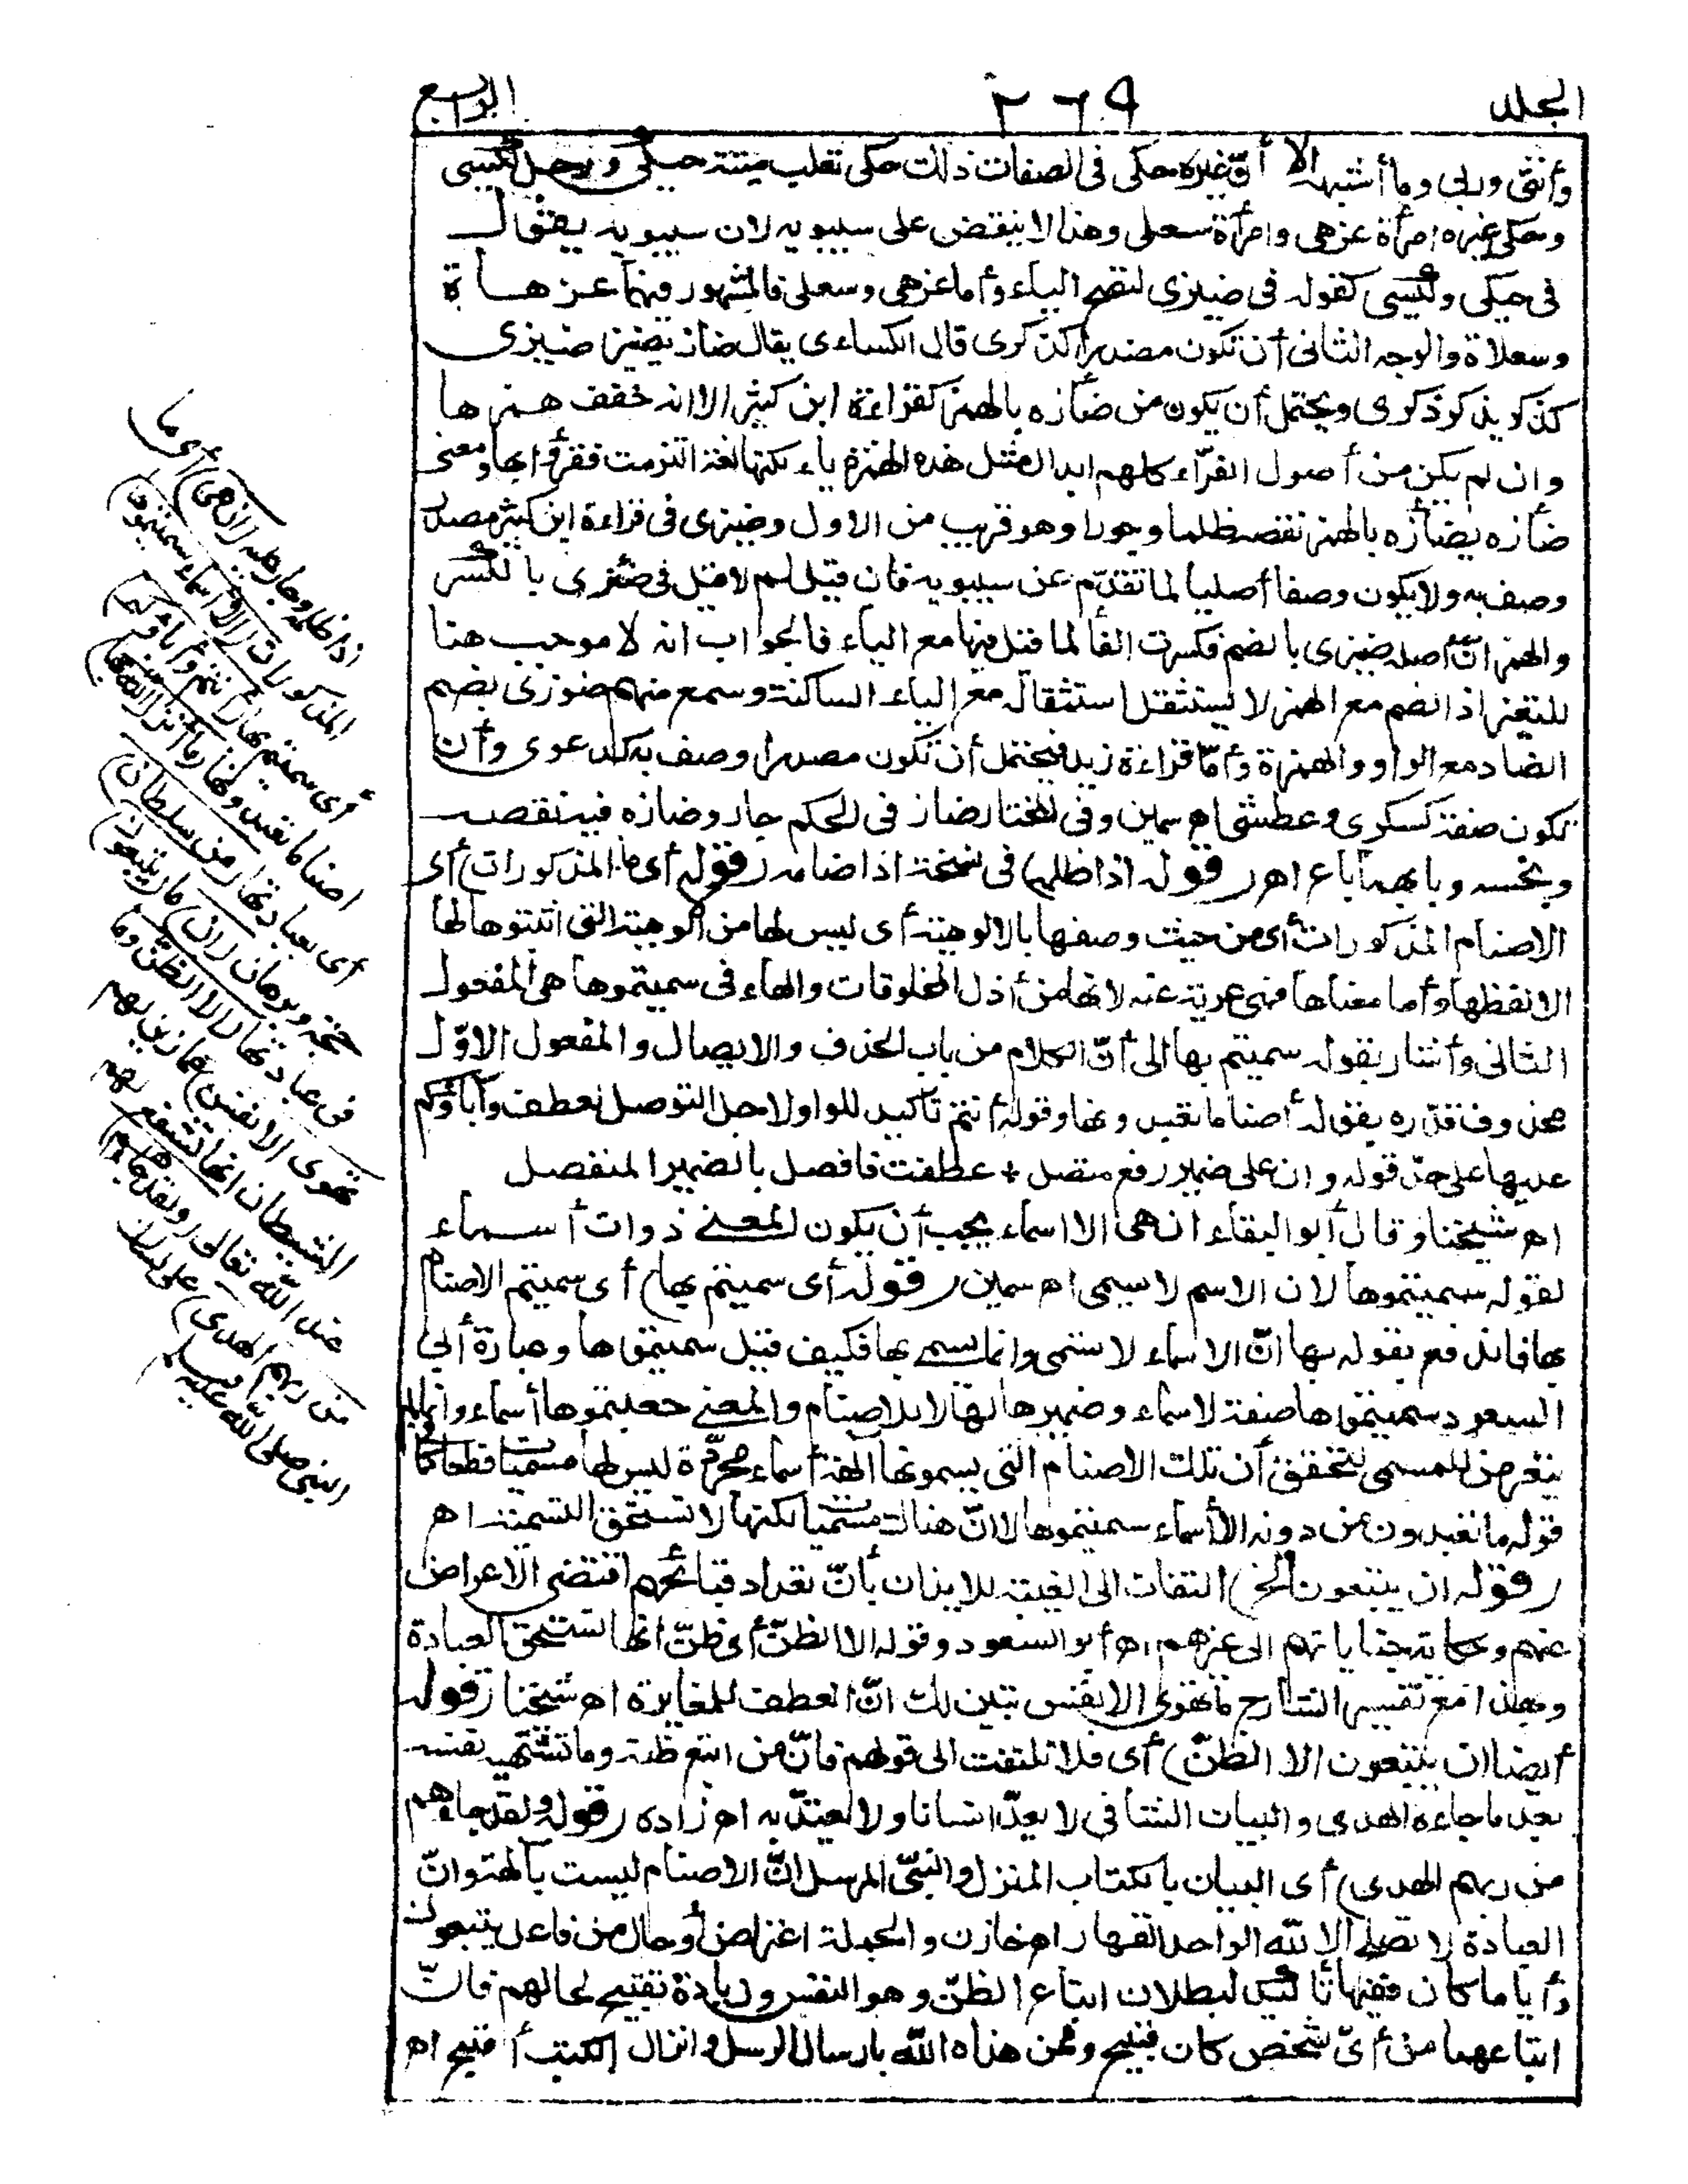 الجلد ٢٦٩ الرابع
وأنثى وربى وما أشبهه الا أنّ غيره حكى فى الصفات ذلك حكى ثعلب ميتة حيكى ورجل كيسى
وحكى غيره امرأة عزهى وامرأة سعلى وهذا لا ينقض على سيبويه لان سيبويه يقول
فى حيكى وكيسى كقوله فى ضيزى لتصح الياء وأما عزهى وسعلى فالمشهور فيهما عزهاة
وسعلاة والوجه الثانى أن تكون مصدرا كذكرى قال الكساءى يقال ضاز يضيز ضيزى
كذكر يذكر ذكرى ويحتمل أن يكون من ضأزه بالهمز كقراءة ابن كثير الا انه خفف همزها
وان لم يكن من أصول القرّاء كلهم ابدال مثل هذه الهمزة ياء لكنها لغة التزمت فقرؤا بها ومعنى
ضأزه يضأزه بالهمز نقصه ظلما وجورا وهو قريب من الاول وضيزى فى قراءة ابن كثير مصدر
وصف به ولا يكون وصفا أصليا لما تقدّم عن سيبويه فان قيل لم لا قيل فى ضئزى بالكسر
والهمز انّ أصله ضئزى بالضم فكسرت الفا لما قيل فيها مع الياء فالجواب انه لا موجب هنا
للتغير اذ الضم مع الهمز لا يستثقل استثقاله مع الياء الساكنة وسمع منهم ضوزى بضم
الضاد مع الواو والهمزة وأمّا قراءة زيد فيحتمل أن تكون مصدرا وصف به كدعوى وأن
تكون صفة كسكرى وعطشى اه سمين وفى المختار ضاز فى الحكم جار وضازه فيه نقصه
وبخسه وبابهما باع اه (قوله اذا ظلمه) فى نسخة اذا ضامه (قوله أى ما المذكورات) أى
الاصنام المذكورات أى من حيث وصفها بالالوهية أى ليس لها من الوهية التى اثبتوها لها
الا لفظها وأما معناها فهى عرية عنه لانها من أذل المخلوقات والهاء فى سميتموها هى المفعول
الثانى وأشار بقوله سميتم بها الى أنّ الكلام من باب الحذف والايصال والمفعول الاوّل
محذوف قدّره بقوله أصناما تعبدونها وقوله أنتم تأكيد للواو لاجل التوصل لعطف وآباؤكم
عليها على حدّ قوله وان على ضمير رفع متصل * عطفت فافصل بالضمير المنفصل
اه شيخنا وقال أبو البقاء ان هى الا اسماء يجب أن يكون المعنى ذوات أسماء
لقوله سميتموها لان الاسم لا يسمى اه سمين (قوله أى سميتم بها) أى سميتم الاصنام
بها فاندفع بقوله بها انّ الاسماء لا تسمى وانما يسمى بها فكيف قيل سميتموها وعبارة أبى
السعود سميتموها صفة لاسماء وضميرها لها لا للاصنام والمعنى جعلتموها أسماء وانما لم
يتعرض للمسمى لتحقق أن تلك الاصنام التى يسمونها آلهة أسماء مجرّدة ليس لها مسميات قطعا كما فى
قوله ما تعبدون من دونه الا أسماء سميتموها لا انّ هناك مسميات لكنها لا تستحق التسمية اه
(قوله ان يتبعون الخ) التفات الى الغيبة للايذان بأنّ تعداد قبائحهم اقتضى الاعراض
عنهم وحكاية جناياتهم الى غيرهم اه أبو السعود وقوله الا الظنّ أى ظنّ أنها تستحق العبادة
وبهذا مع تفسير الشارح ما تهوى الانفس تبين لك انّ العطف للمغايرة اه شيخنا (قوله
أيضا ان يتبعون الا الظنّ) أى فلا تلتفت الى قولهم فانّ من اتبع ظنه وما تشتهيه نفسه
بعد ما جاءه الهدى والبيان الشافى لا يعدّ انسانا ولا يعتدّ به اه زاده (قوله ولقد جاءهم
من ربهم الهدى) أى البيان بالكتاب المنزل والنبىّ المرسل انّ الاصنام ليست بآلهة وانّ
العبادة لا تصلح الا لله الواحد القهار اه خازن والجملة اعتراض أو حال من فاعل يتبعون
وأياما كان ففيها تأكيد لبطلان اتباع الظنّ وهو النفس وزيادة تقبيح لحالهم فانّ
اتباعهما من أىّ شخص كان قبيح وممن هداه الله بارسال الرسل وانزال الكتب أقبح اه
اذا ظلمه وجار عليه (ان هى) أى ما
المذكورات (الا أسماء سميتموها)
أى سميتم بها (أنتم وآباؤكم)
اصناما تعبدونها (ما أنزل الله بها)
أى بعبادتها (من سلطان)
حجة وبرهان (ان) ما (يتبعون)
فى عبادتها (الا الظنّ وما
تهوى الانفس) مما زين لهم
الشيطان انها تشفع لهم
عند الله تعالى (ولقد جاءهم
من ربهم الهدى) على لسان
النبى صلى الله عليه وسلم